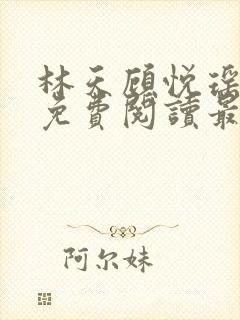 林天顾悦瑶
免費閱讀最
阿尔妹